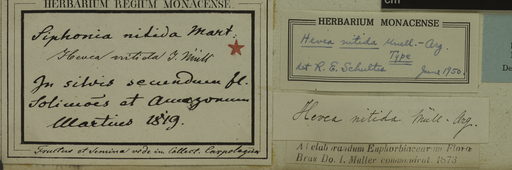 HERBARIUM REGIUM MONACENSE.
Siphonia nitida Mart.
Hevea nitida J. Müll
In silvis secundum fl.
Solimoës et Amazonum
Martius 1819.
Fructus et Semina vide in Collect. Carpologica
cm
HERBARIUM MONACENSE
Hevea nitida Muell.-Arg.
Type
det R. E. Schultes June 1950.
Hevea nitida Müll-Arg.
Ad elaborandum Euphorbiacearum Florae
Bras Do. J. Müller communicat. 1873